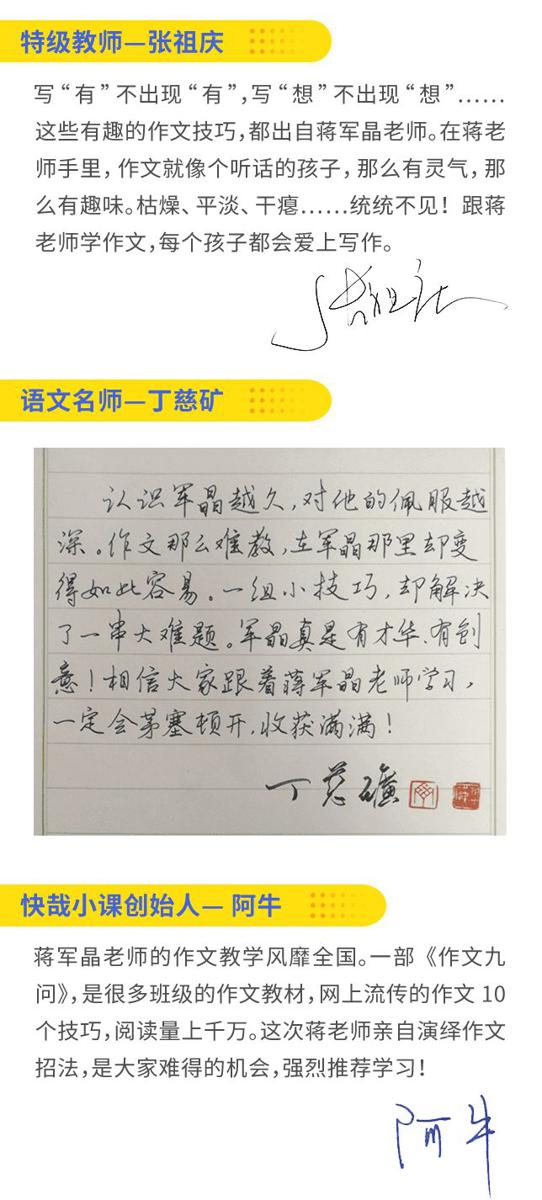 特级教师—张祖庆
写“有”不出现“有”，写“想”不出现“想”……
这些有趣的作文技巧，都出自蒋军晶老师。在蒋老
师手里，作文就像个听话的孩子，那么有灵气，那
么有趣味。枯燥、平淡、干瘪……统统不见！跟蒋
老师学作文，每个孩子都会爱上写作。
张祖庆
语文名师—丁慈矿
认识军晶越久，对他的佩服越
深。作文那么难教，在军晶那里却变
得如此容易。一组小技巧，却解决
了一串大难题。军晶真是有才华、有创
意！相信大家跟着蒋军晶老师学习，
一定会茅塞顿开，收获满满！
丁慈礦
快哉小课创始人— 阿牛
蒋军晶老师的作文教学风靡全国。一部《作文九
问》，是很多班级的作文教材，网上流传的作文 10
个技巧，阅读量上千万。这次蒋老师亲自演绎作文
招法，是大家难得的机会，强烈推荐学习！
阿牛